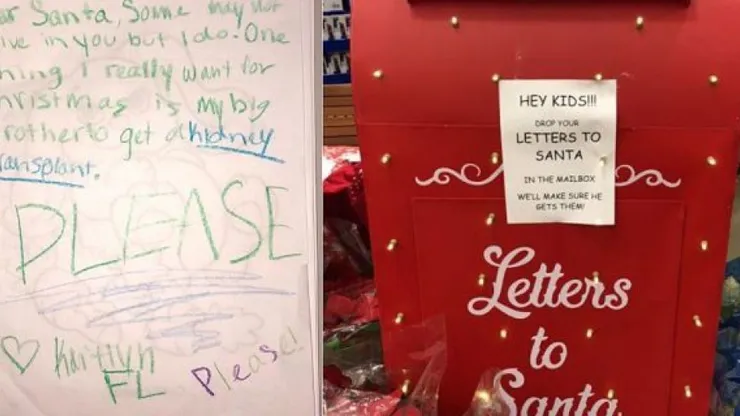 ar Santa, Some may not
ive in you but I do. One
hing I really want for
hristmas is my big
rother to get a kidney
ransplant.
PLEASE
♡ Kaitlyn
FL
Please!
HEY KIDS!!!
DROP YOUR
LETTERS TO
SANTA
IN THE MAILBOX
WE'LL MAKE SURE HE
GETS THEM!
Letters
to
Santa